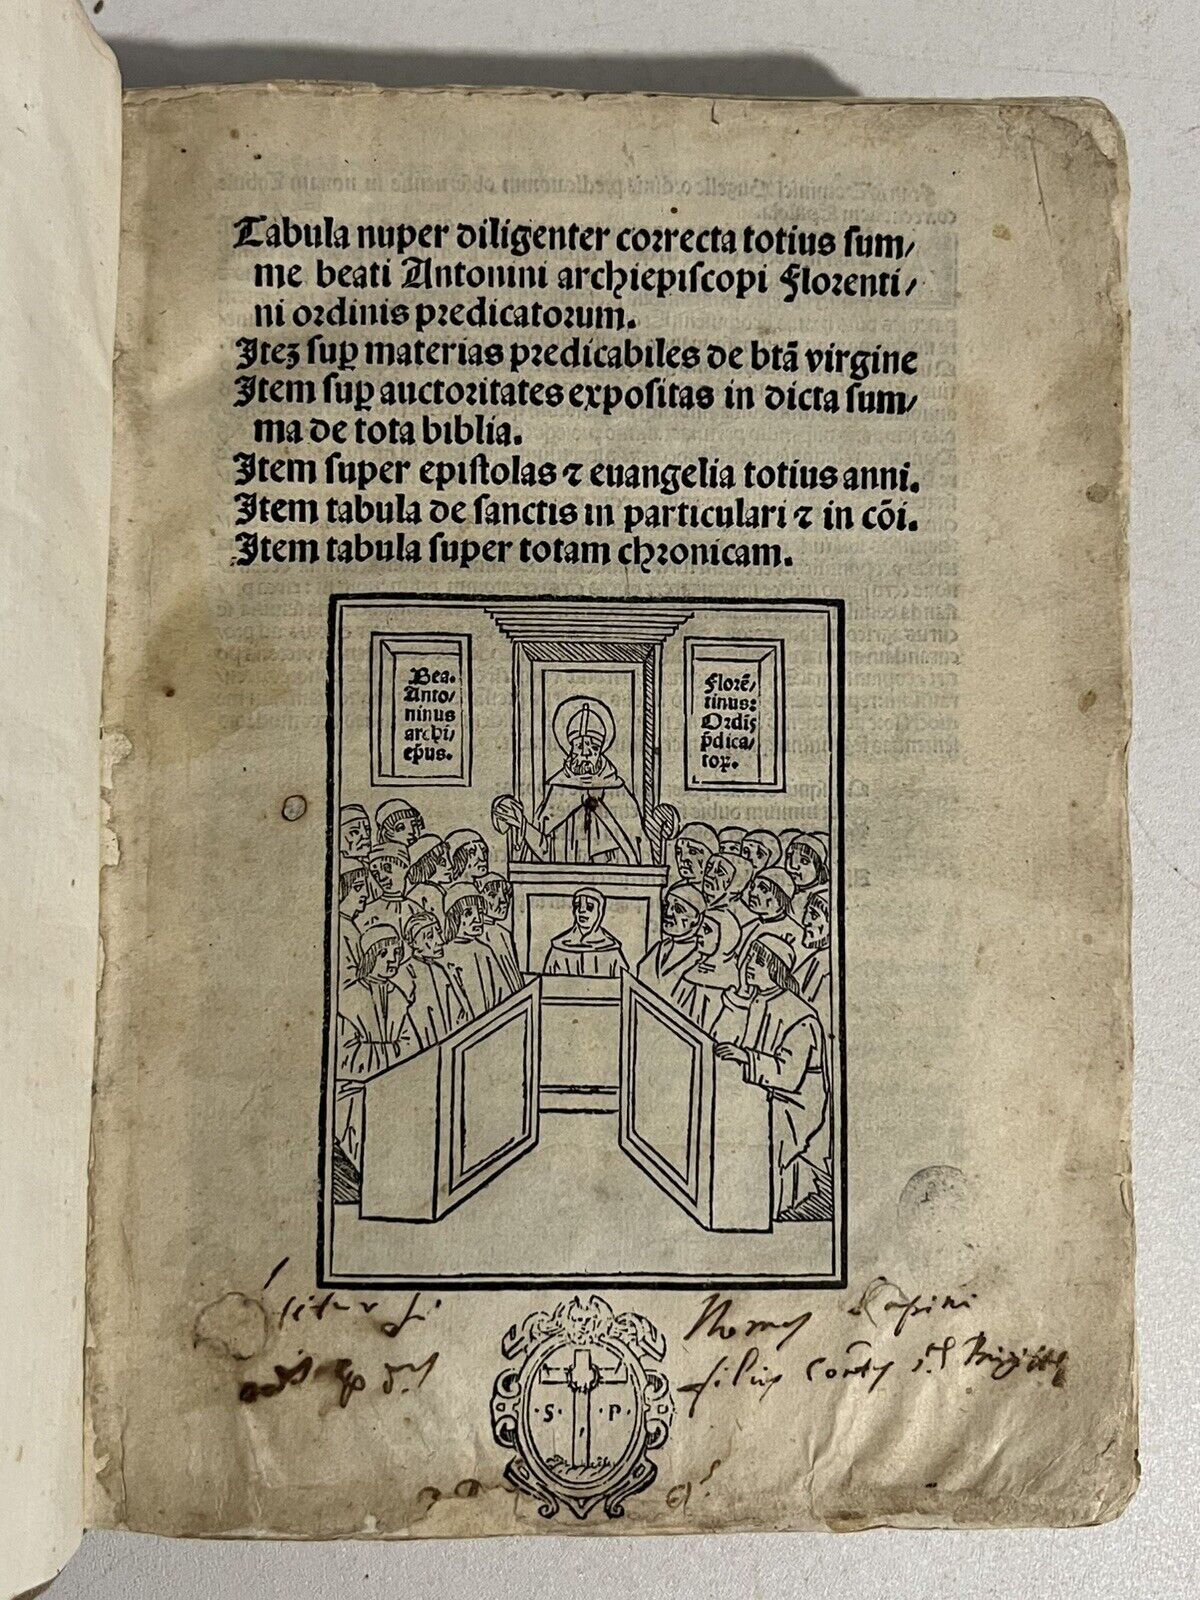 Tabula nuper diligenter correcta totius sum/
me beati Antonini archiepiscopi Florenti/
ni ordinis predicatorum.
Iteꝫ suꝑ materias predicabiles de btã virgine
Item suꝑ auctoritates expositas in dicta sum/
ma de tota biblia.
Item super epistolas ⁊ euangelia totius anni.
Item tabula de sanctis in particulari ⁊ in cõi.
Item tabula super totam chronicam.
Bea.
Anto/
ninus
archi/
ep̃us.
Florẽ/
tinus:
Ordĩs
p̃dica/
toꝝ.
filius
· S · P ·